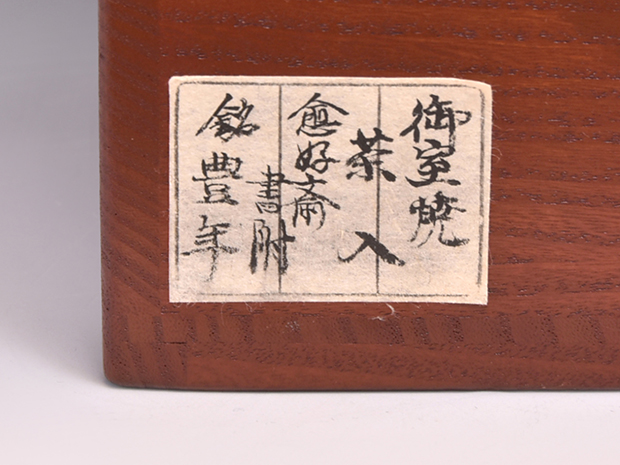 御室焼
茶入
愈好斎
書附
銘豊年